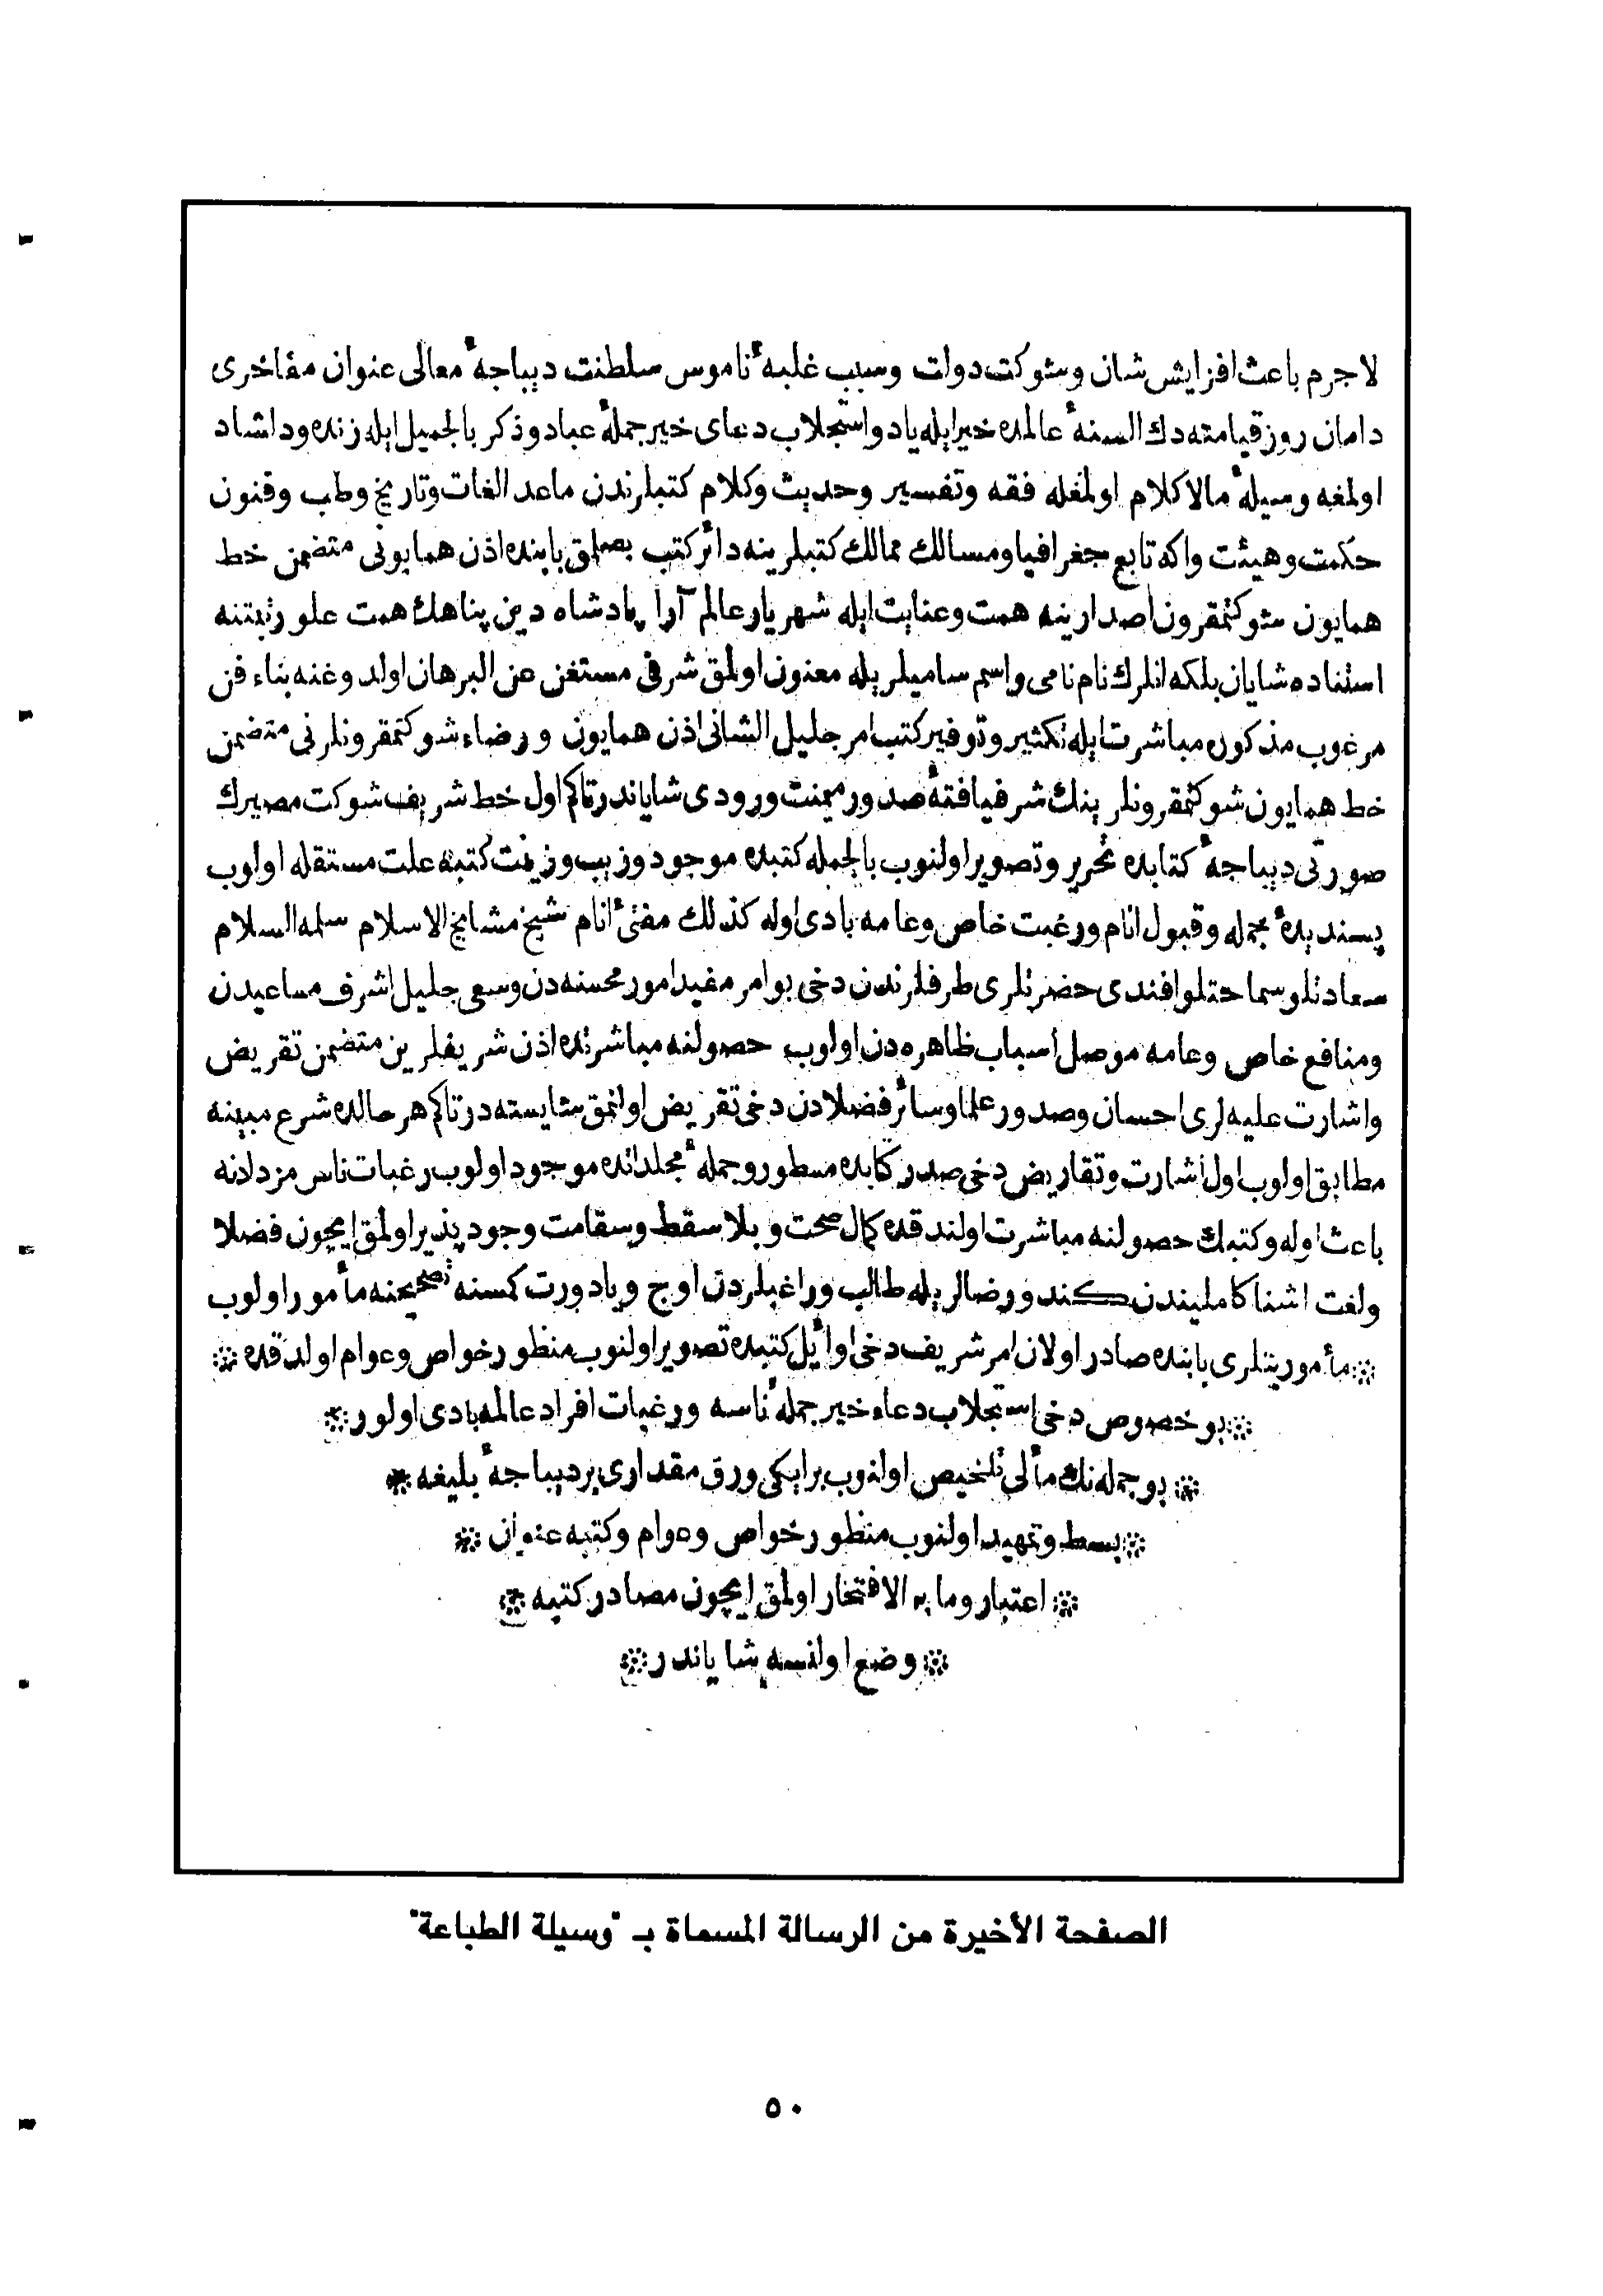 لاجرم باعث افزایش شان وشوکت دولت وسبب غلبهٔ ناموس سلطنت دیباجهٔ معالی عنوان مفاخری
دامان روز قیامته دك السنهٔ عالمده خیر ایله یاد واستجلاب دعای خیر جملهٔ عباد وذکر بالجمیل ایله زنده ودلشاد
اولمغه وسیلهٔ مالاکلام اولمغله فقه وتفسیر وحدیث وکلام کتبلرندن ماعدا لغات وتاریخ وطب وفنون
حکمت وهیئت واکه تابع جغرافیا ومسالك ممالك کتبلرینه دائر کتب بصملق بابنده اذن همایونی متضمن خط
همایون شوکتمقرون اصدارینه همت وعنایت ایله شهریار عالم آرا پادشاه دین پناهك همت علو رتبتنه
استناده شایان بلکه انلرك نام نامی واسم سامیلریله معنون اولمق شرفی مستغن عن البرهان اولدوغنه بناء فن
مرغوب مذکوره مباشرت ایله تکثیر وتوفیر کتب امر جلیل الشانی اذن همایون ورضاء شوکتمقرونلرنی متضمن
خط همایون شوکتمقرونلرینك شرفیافتهٔ صدور میمنت ورودی شایاندر تاکم اول خط شریف شوکت مصیرك
صورتی دیباجهٔ کتابده تحریر وتصویر اولنوب بالجمله کتبده موجود وزیب وزینت کتبه علت مستقله اولوب
پسندیدهٔ جمله وقبول انام ورغبت خاص وعامه بادی اوله کذلك مفتئ انام شیخ مشایخ الاسلام سلمه السلام
سعادتلو سماحتلو افندی حضرتلری طرفلرندن دخی بو امر مفید امور محسنه دن وسعی جلیل اشرف مساعیدن
ومنافع خاص وعامه موصل اسباب ظاهره دن اولوب حصولنه مباشرتده اذن شریفلرین متضمن تقریض
واشارت علیه لری احسان وصدور علما وسائر فضلادن دخی تقریض اولنمق شایسته در تاکم هر حالده شرع مبینه
مطابق اولوب اول اشارت وتقاریض دخی صدر کتابده مسطور وجملهٔ مجلداتده موجود اولوب رغبات ناس مزدادنه
باعث اوله وکتبك حصولنه مباشرت اولندقده کمال صحت وبلاسقط وسقامت وجود پذیر اولمق ایچون فضلا
ولغت اشنا کاملیندن کند ورضالریله طالب وراغبلردن اوچ ویا دورت کمسنه تصحیحنه مأمور اولوب
مأموریتلری بابنده صادر اولان امر شریف دخی اوائل کتبده تصویر اولنوب منظور خواص وعوام اولدقده
بو خصوص دخی استجلاب دعاء خیر جملهٔ ناسه ورغبات افراد عالمه بادی اولور
بو جمله نك مألی تلخیص اولنوب بر ایکی ورق مقداری بر دیباجهٔ بلیغه
بسط وتمهید اولنوب منظور خواص وعوام وکتبه عنوان
اعتبار وما به الافتخار اولمق ایچون مصادر کتبه
وضع اولنسه شایاندر
الصفحة الأخيرة من الرسالة المسماة بـ "وسيلة الطباعة"
٥٠